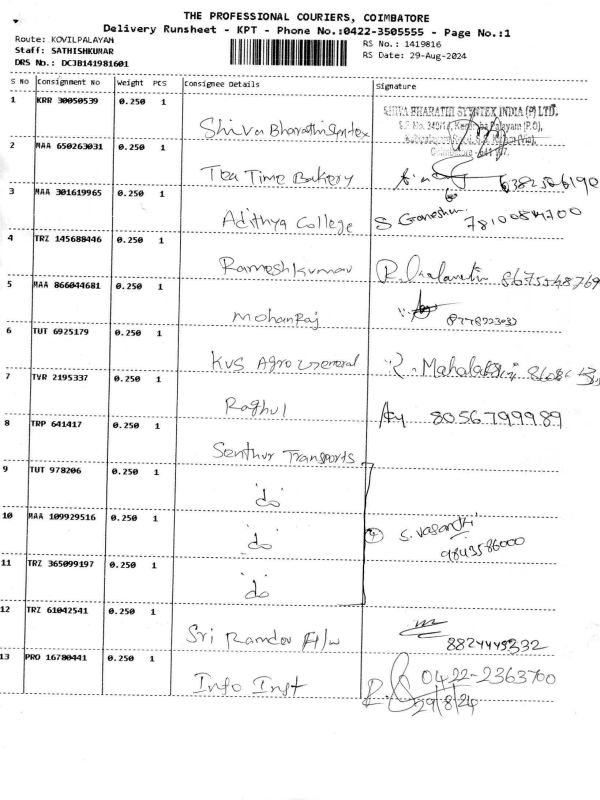 THE PROFESSIONAL COURIERS, COIMBATORE
Delivery Runsheet - KPT - Phone No.:0422-3505555 - Page No.:1
Route: KOVILPALAYAM
Staff: SATHISHKUMAR
DRS No.: DCJB141981601
RS No.: 1419816
RS Date: 29-Aug-2024
S No Consignment No Weight PCS Consignee Details Signature
1 KRR 30050539 0.250 1 Shiva Bharathi Syntex
SHIVA BHARATHI SYNTEX INDIA (P) LTD.
2 MAA 650263031 0.250 1 Tea Time Bakery
3 MAA 301619965 0.250 1 Adithya College S Ganesh
4 TRZ 145688446 0.250 1 Rameshkumar
5 MAA 866044681 0.250 1 Mohanraj
6 TUT 6925179 0.250 1 KVS Agro General R. Mahalakshmi
7 TVR 2195337 0.250 1 Raghul 8056799989
8 TRP 641417 0.250 1 Senthur Transports
9 TUT 978206 0.250 1 do
10 MAA 109929516 0.250 1 do 4 S. Vasanthi
9843586000
11 TRZ 365099197 0.250 1 do
12 TRZ 61042541 0.250 1 Sri Ramdev H/w
13 PRO 16780441 0.250 1 Info Inst 0422-2363700
29/8/24